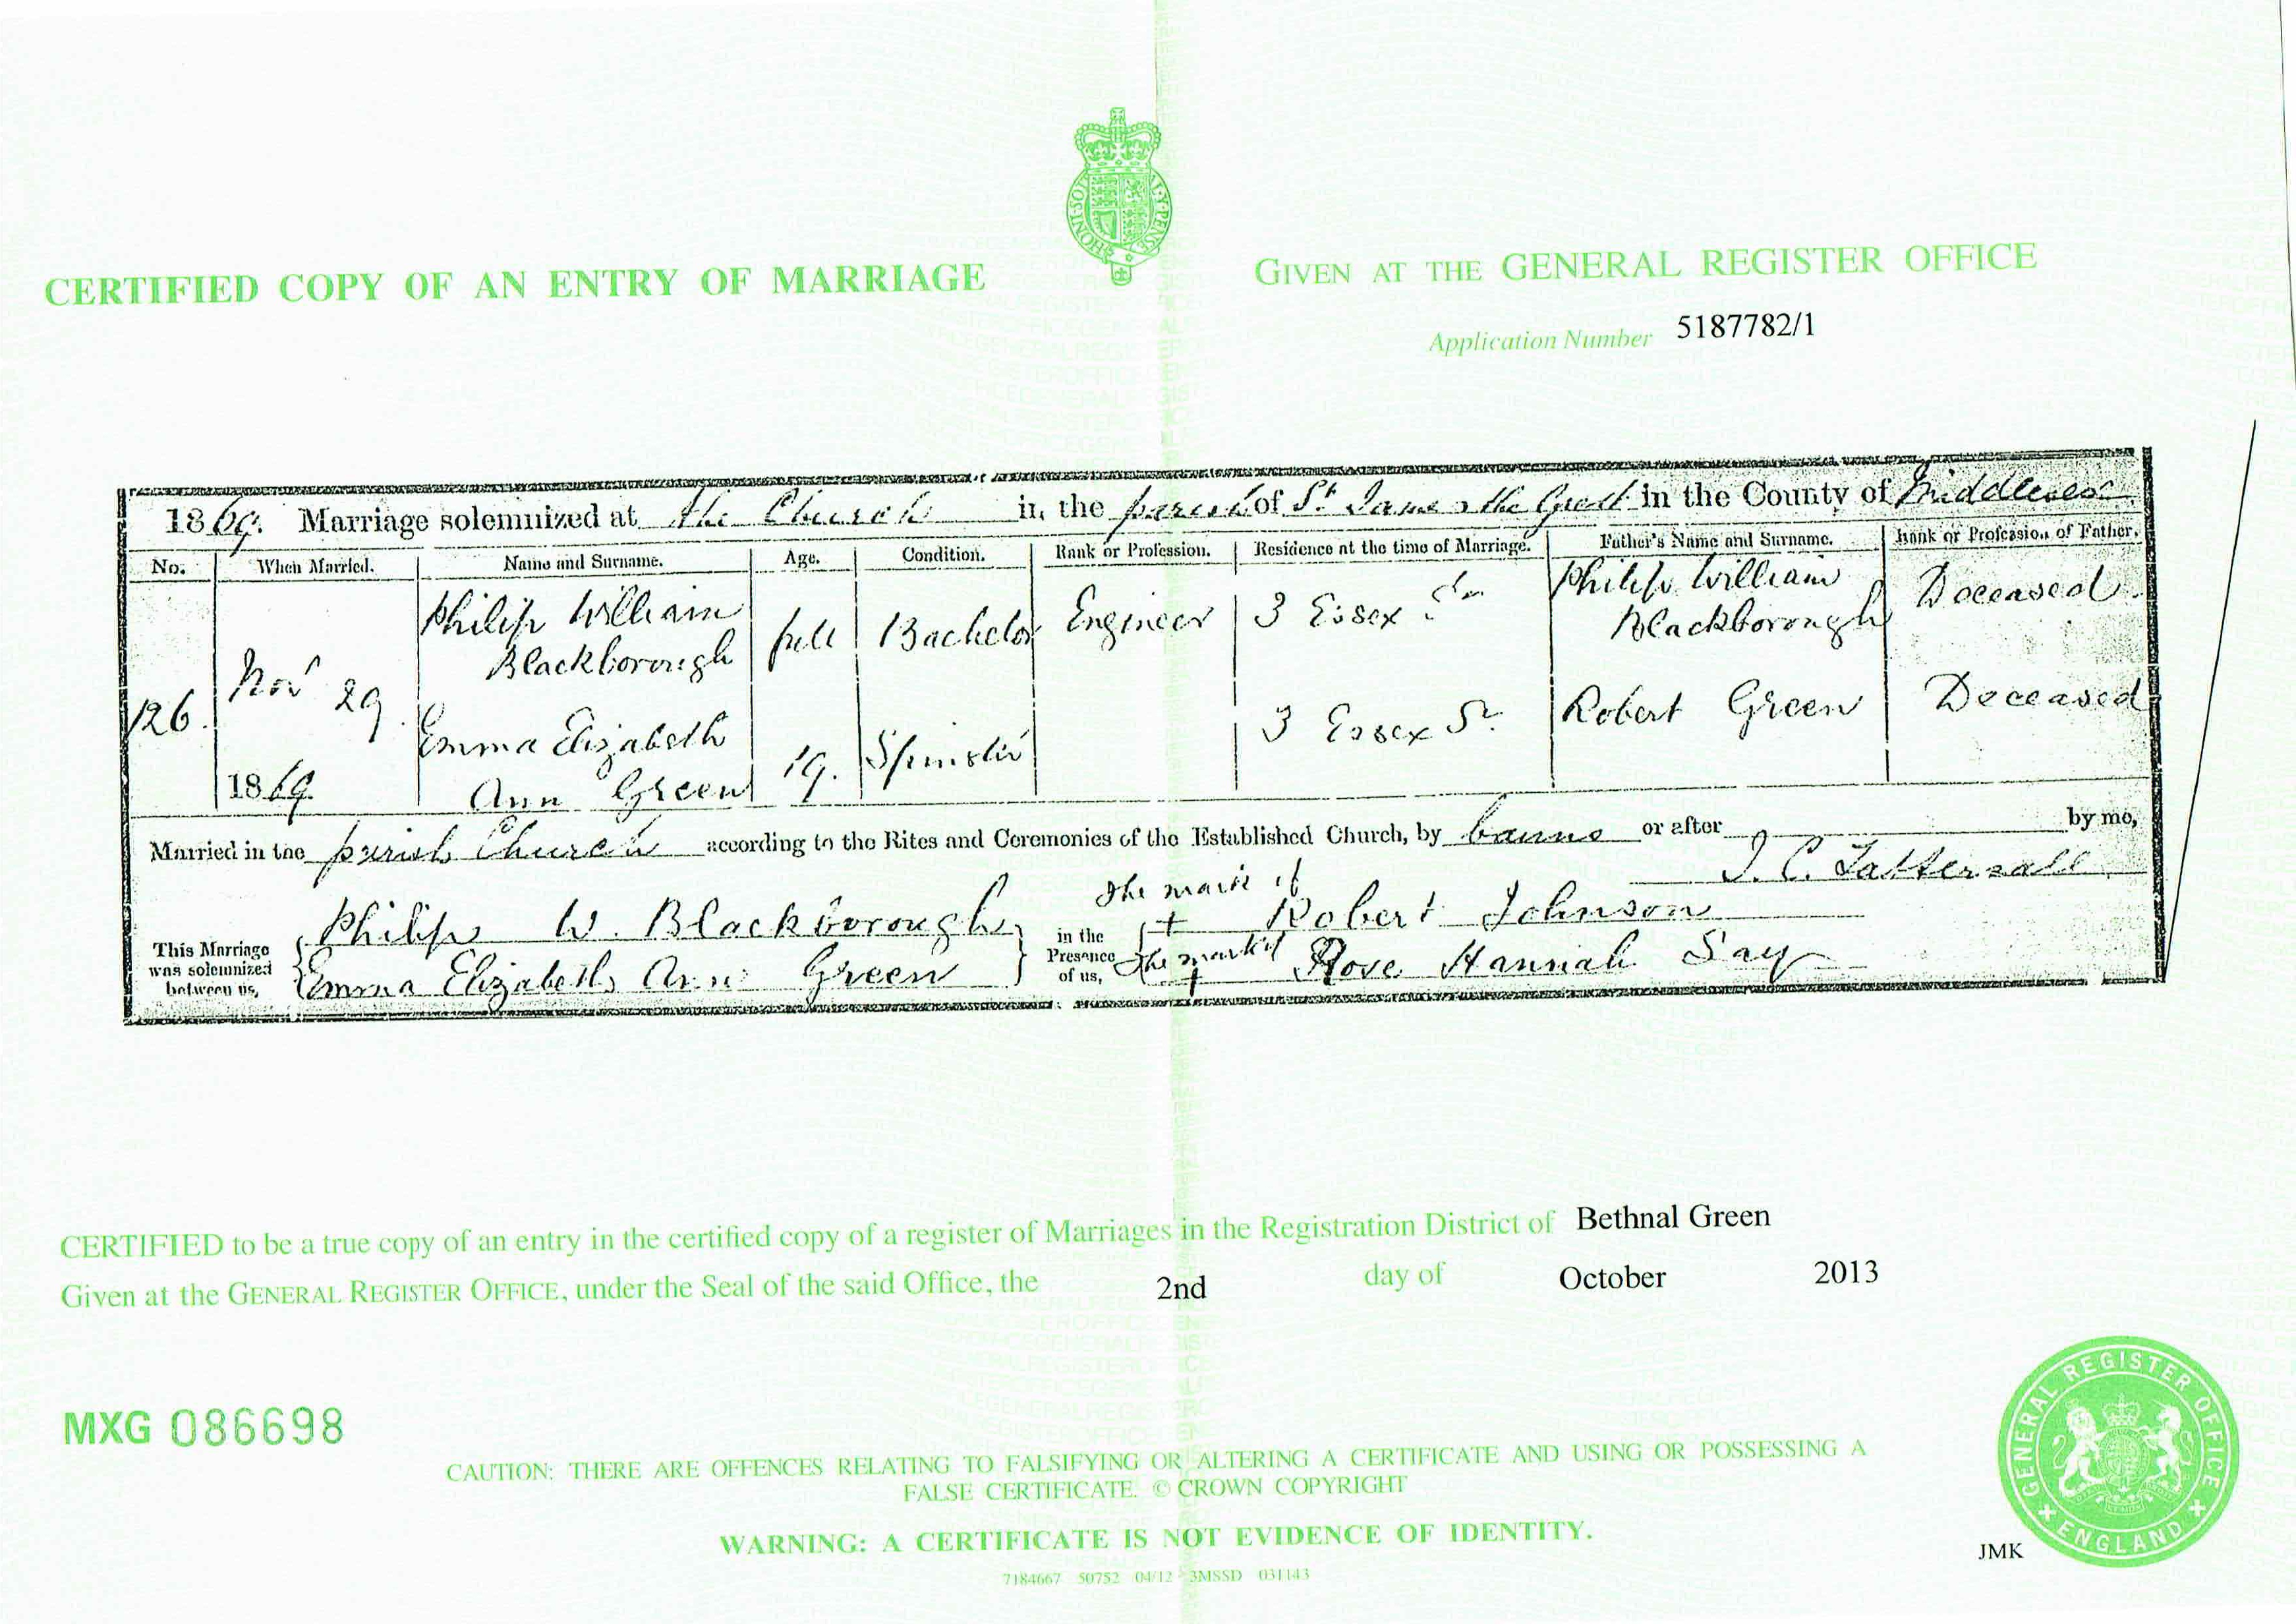 CERTIFIED COPY OF AN ENTRY OF MARRIAGE
GIVEN AT THE GENERAL REGISTER OFFICE
Application Number 5187782/1
1869. Marriage solemnized at the Church in the parish of St James the Great in the County of Middlesex
No. When Married. Name and Surname. Age. Condition. Rank or Profession. Residence at the time of Marriage. Father's Name and Surname. Rank or Profession of Father.
126. Nov 29 1869 Philip William Blackborough full Bachelor Engineer 3 Essex St Philip William Blackborough Deceased
Emma Elizabeth Ann Green 19. Spinster 3 Essex St Robert Green Deceased
Married in the parish Church according to the Rites and Ceremonies of the Established Church, by banns or after by me,
J. C. Tattersall
This Marriage was solemnized between us, Philip W. Blackborough in the Presence of us, The mark of + Robert Johnson
Emma Elizabeth Ann Green The mark of + Rose Hannah Say
CERTIFIED to be a true copy of an entry in the certified copy of a register of Marriages in the Registration District of Bethnal Green
Given at the GENERAL REGISTER OFFICE, under the Seal of the said Office, the 2nd day of October 2013
MXG 086698
CAUTION: THERE ARE OFFENCES RELATING TO FALSIFYING OR ALTERING A CERTIFICATE AND USING OR POSSESSING A
FALSE CERTIFICATE. © CROWN COPYRIGHT
WARNING: A CERTIFICATE IS NOT EVIDENCE OF IDENTITY.
7184667 50752 04/12 3MSSD 031143
JMK
GENERAL REGISTER OFFICE
ENGLAND